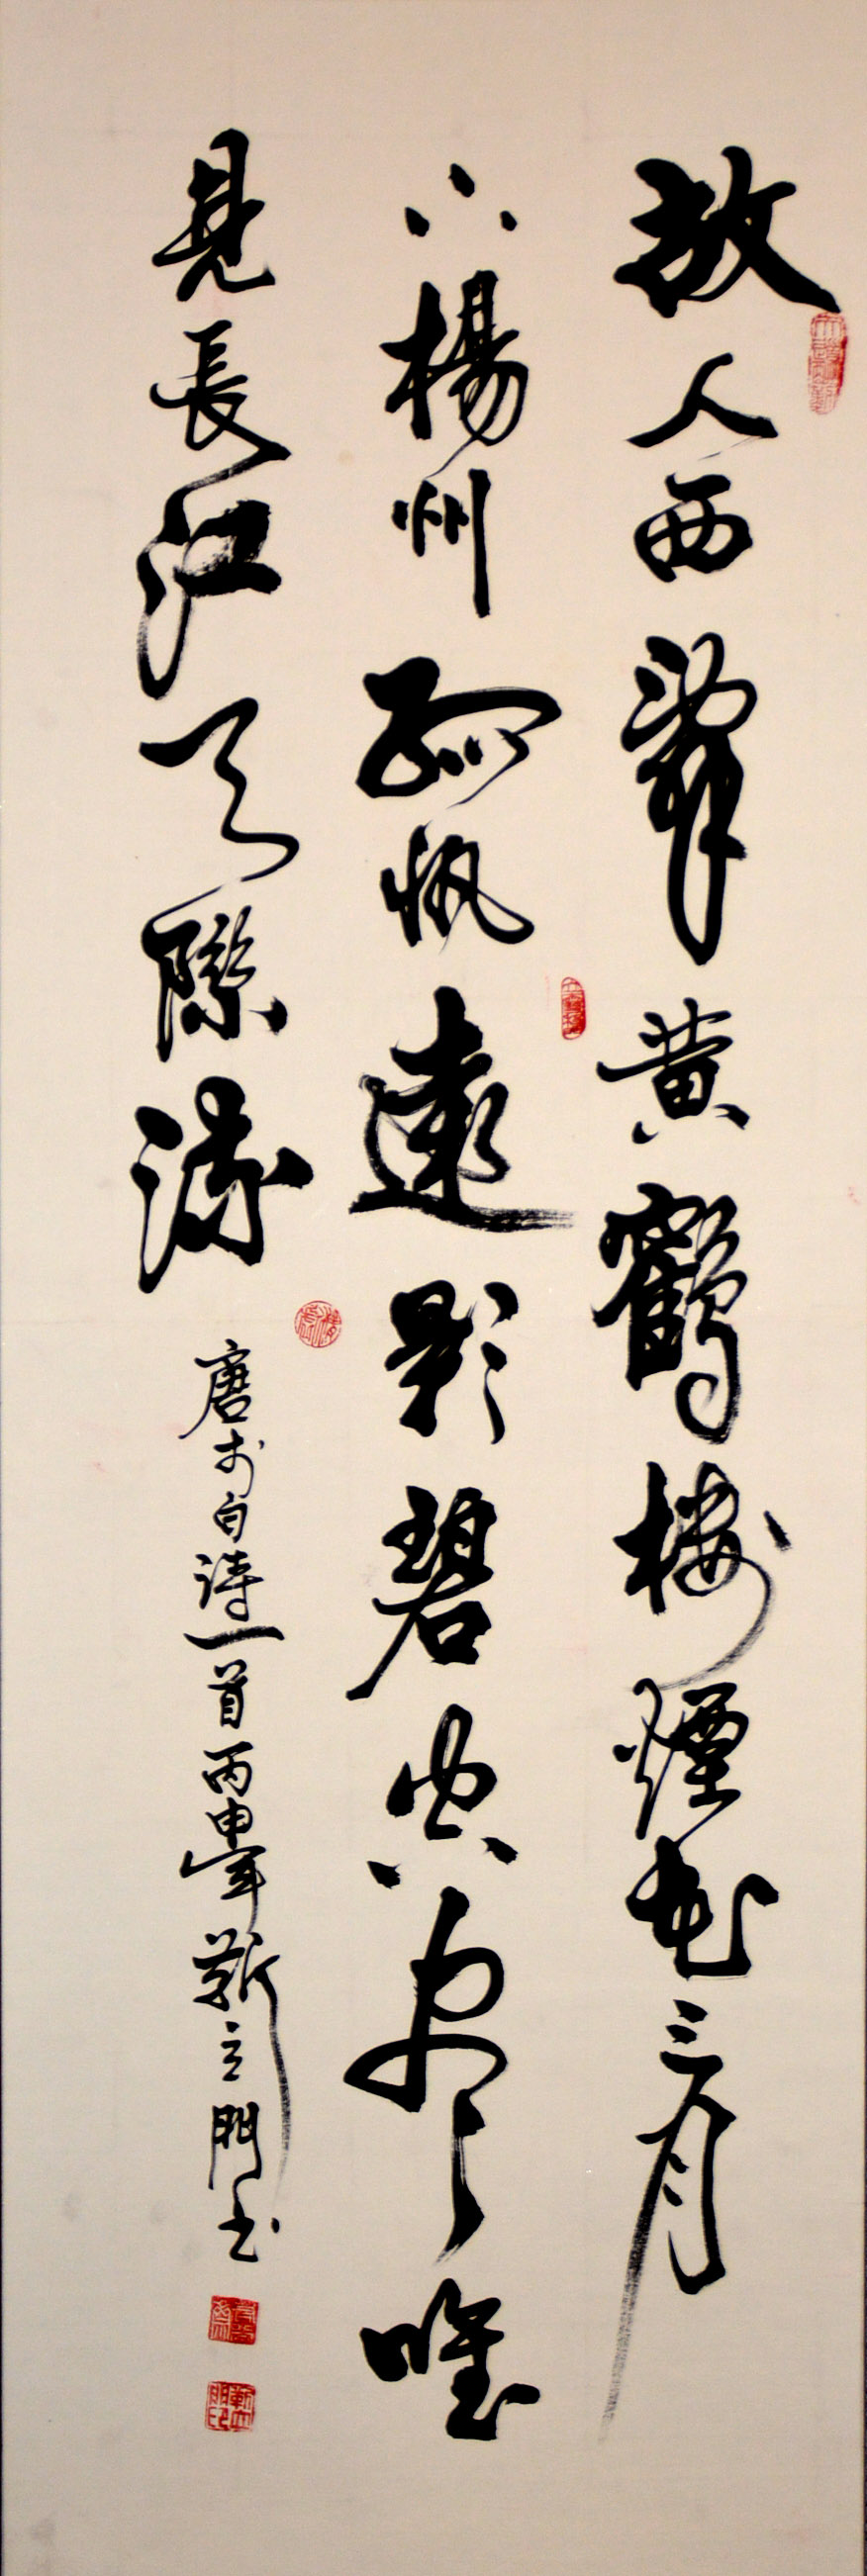 故人西辭黃鶴樓煙花三月
下楊州孤帆遠影碧空盡唯
見長江天際流
唐李白詩一首丙申年靳立門書